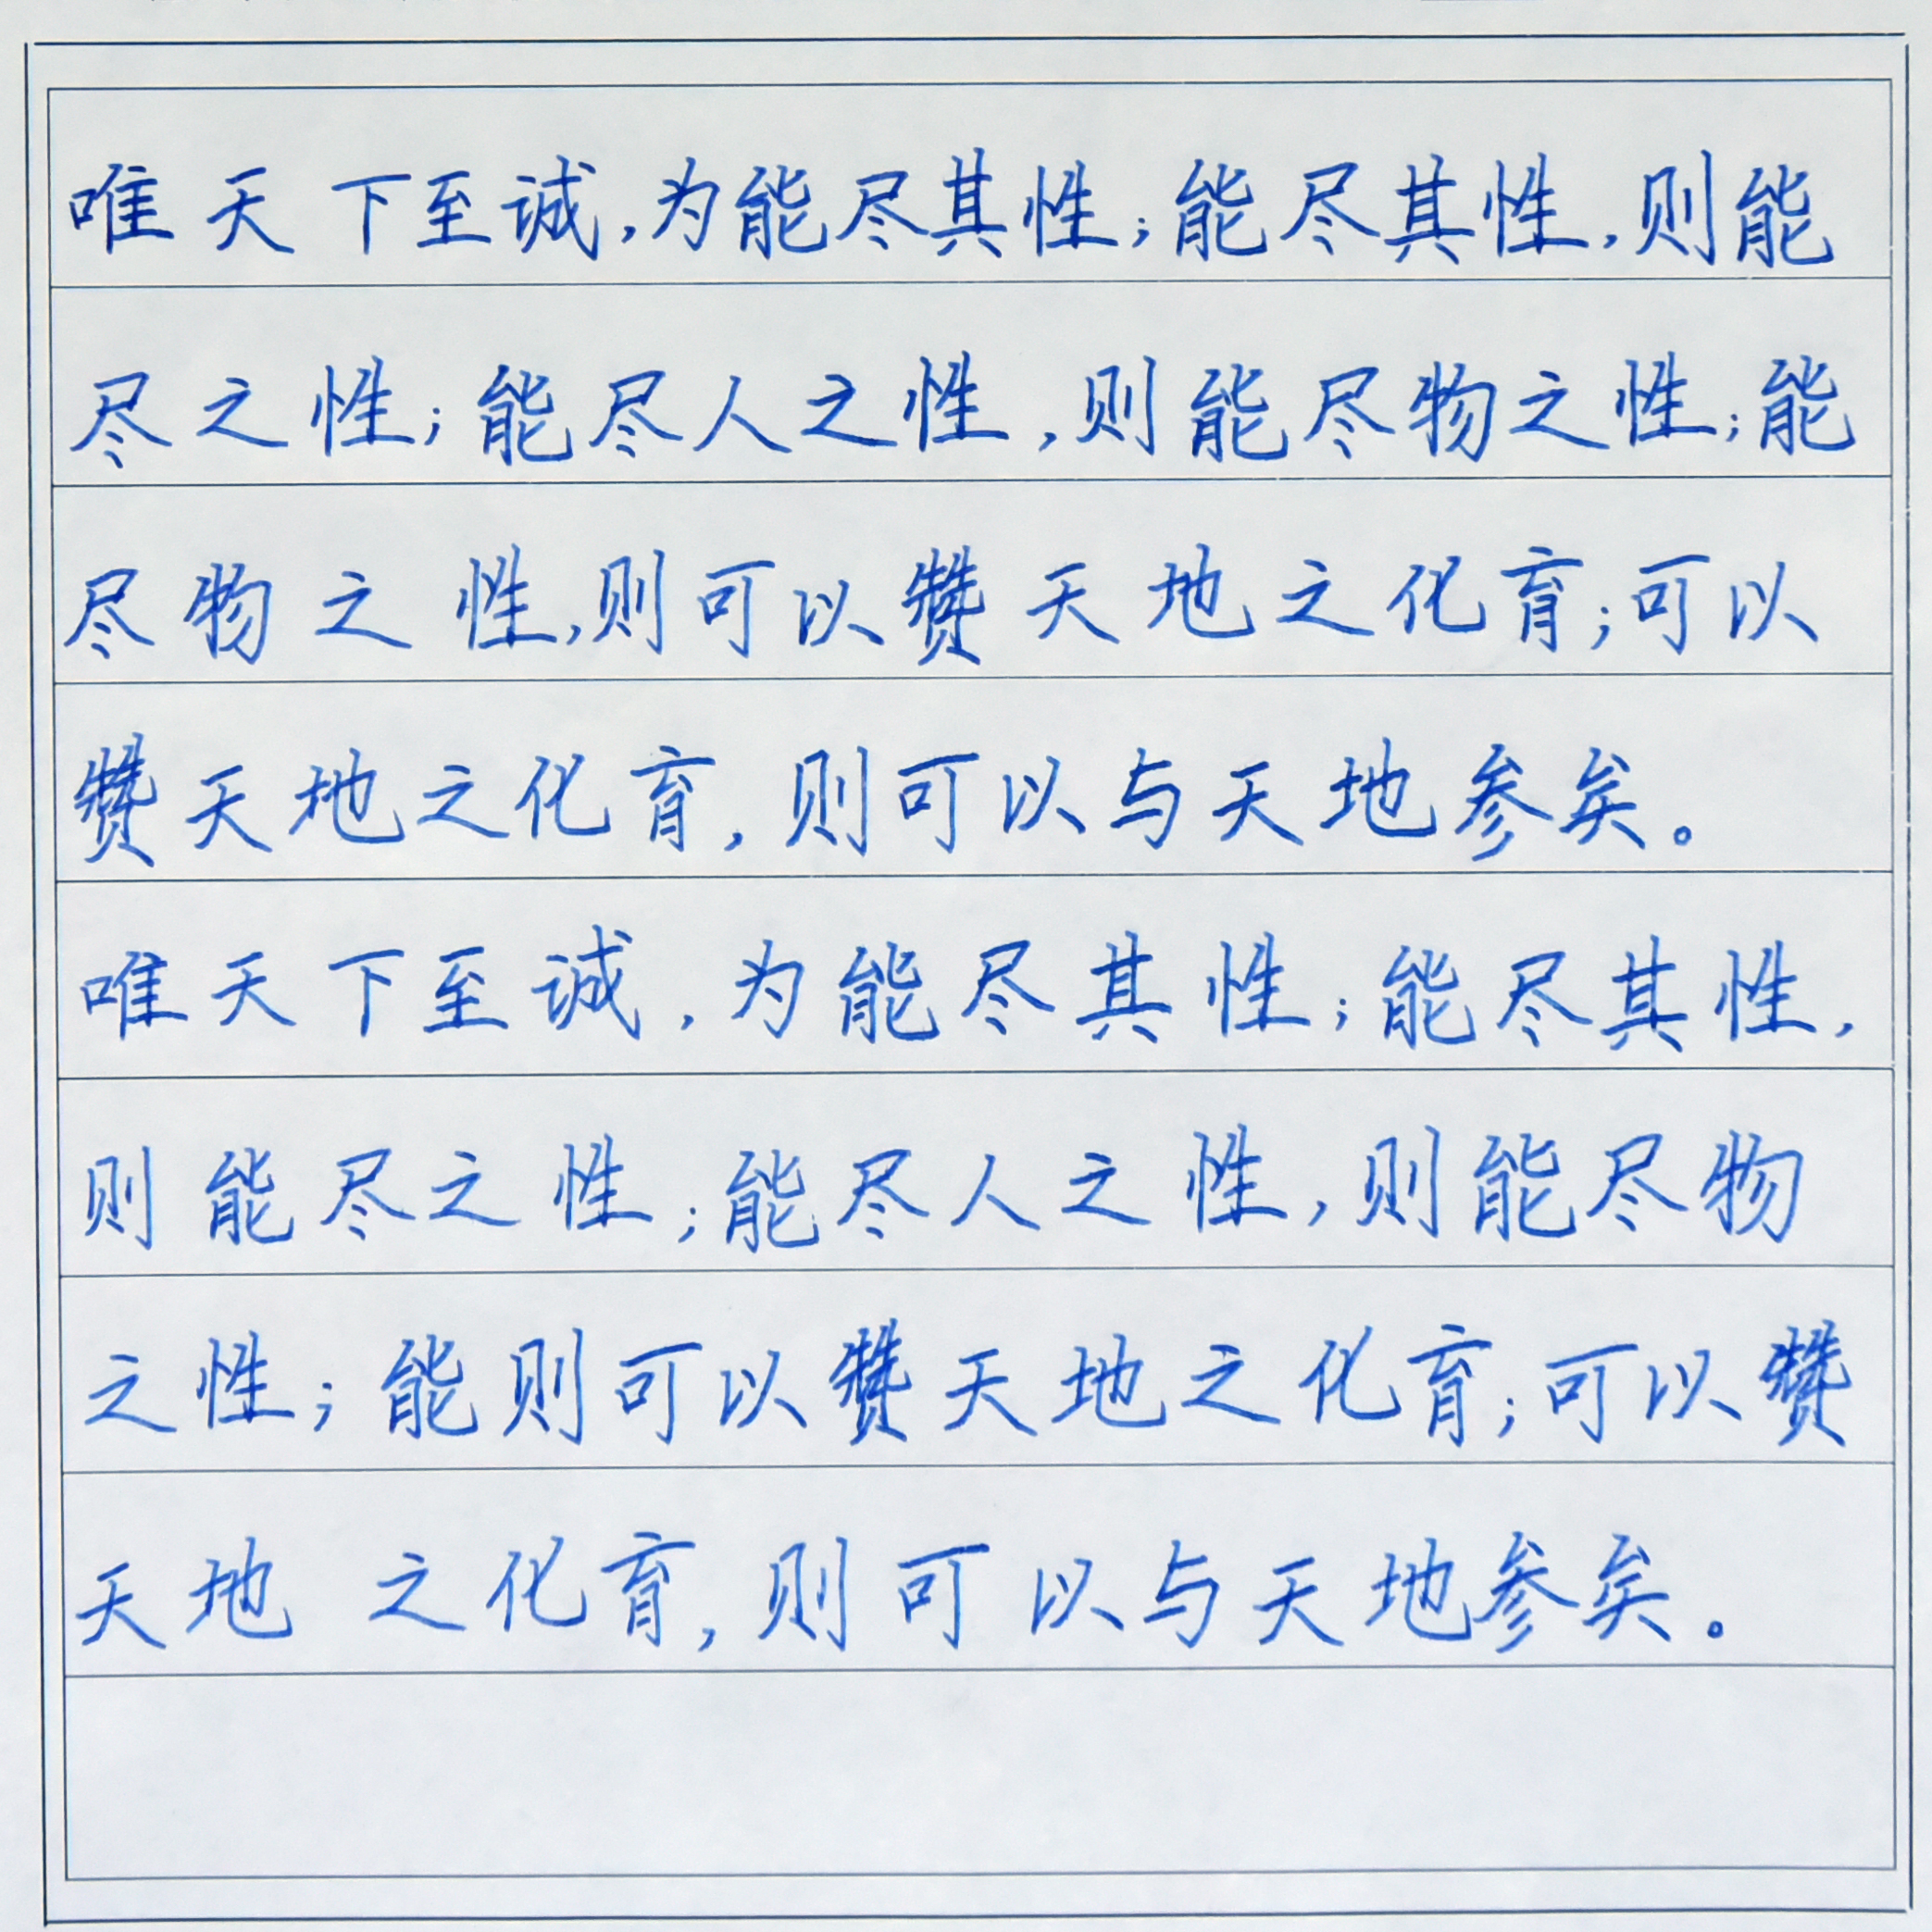 唯天下至诚,为能尽其性;能尽其性,则能
尽之性;能尽人之性,则能尽物之性;能
尽物之性,则可以赞天地之化育;可以
赞天地之化育,则可以与天地参矣。
唯天下至诚,为能尽其性;能尽其性,
则能尽之性;能尽人之性,则能尽物
之性;能则可以赞天地之化育;可以赞
天地之化育,则可以与天地参矣。